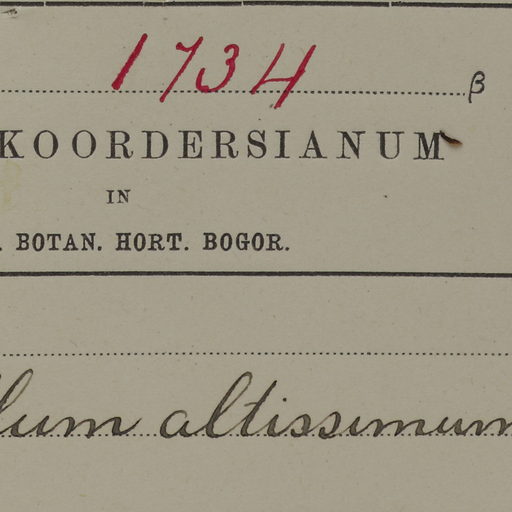 1734 β
KOORDERSIANUM
IN
. BOTAN. HORT. BOGOR.
altissimum